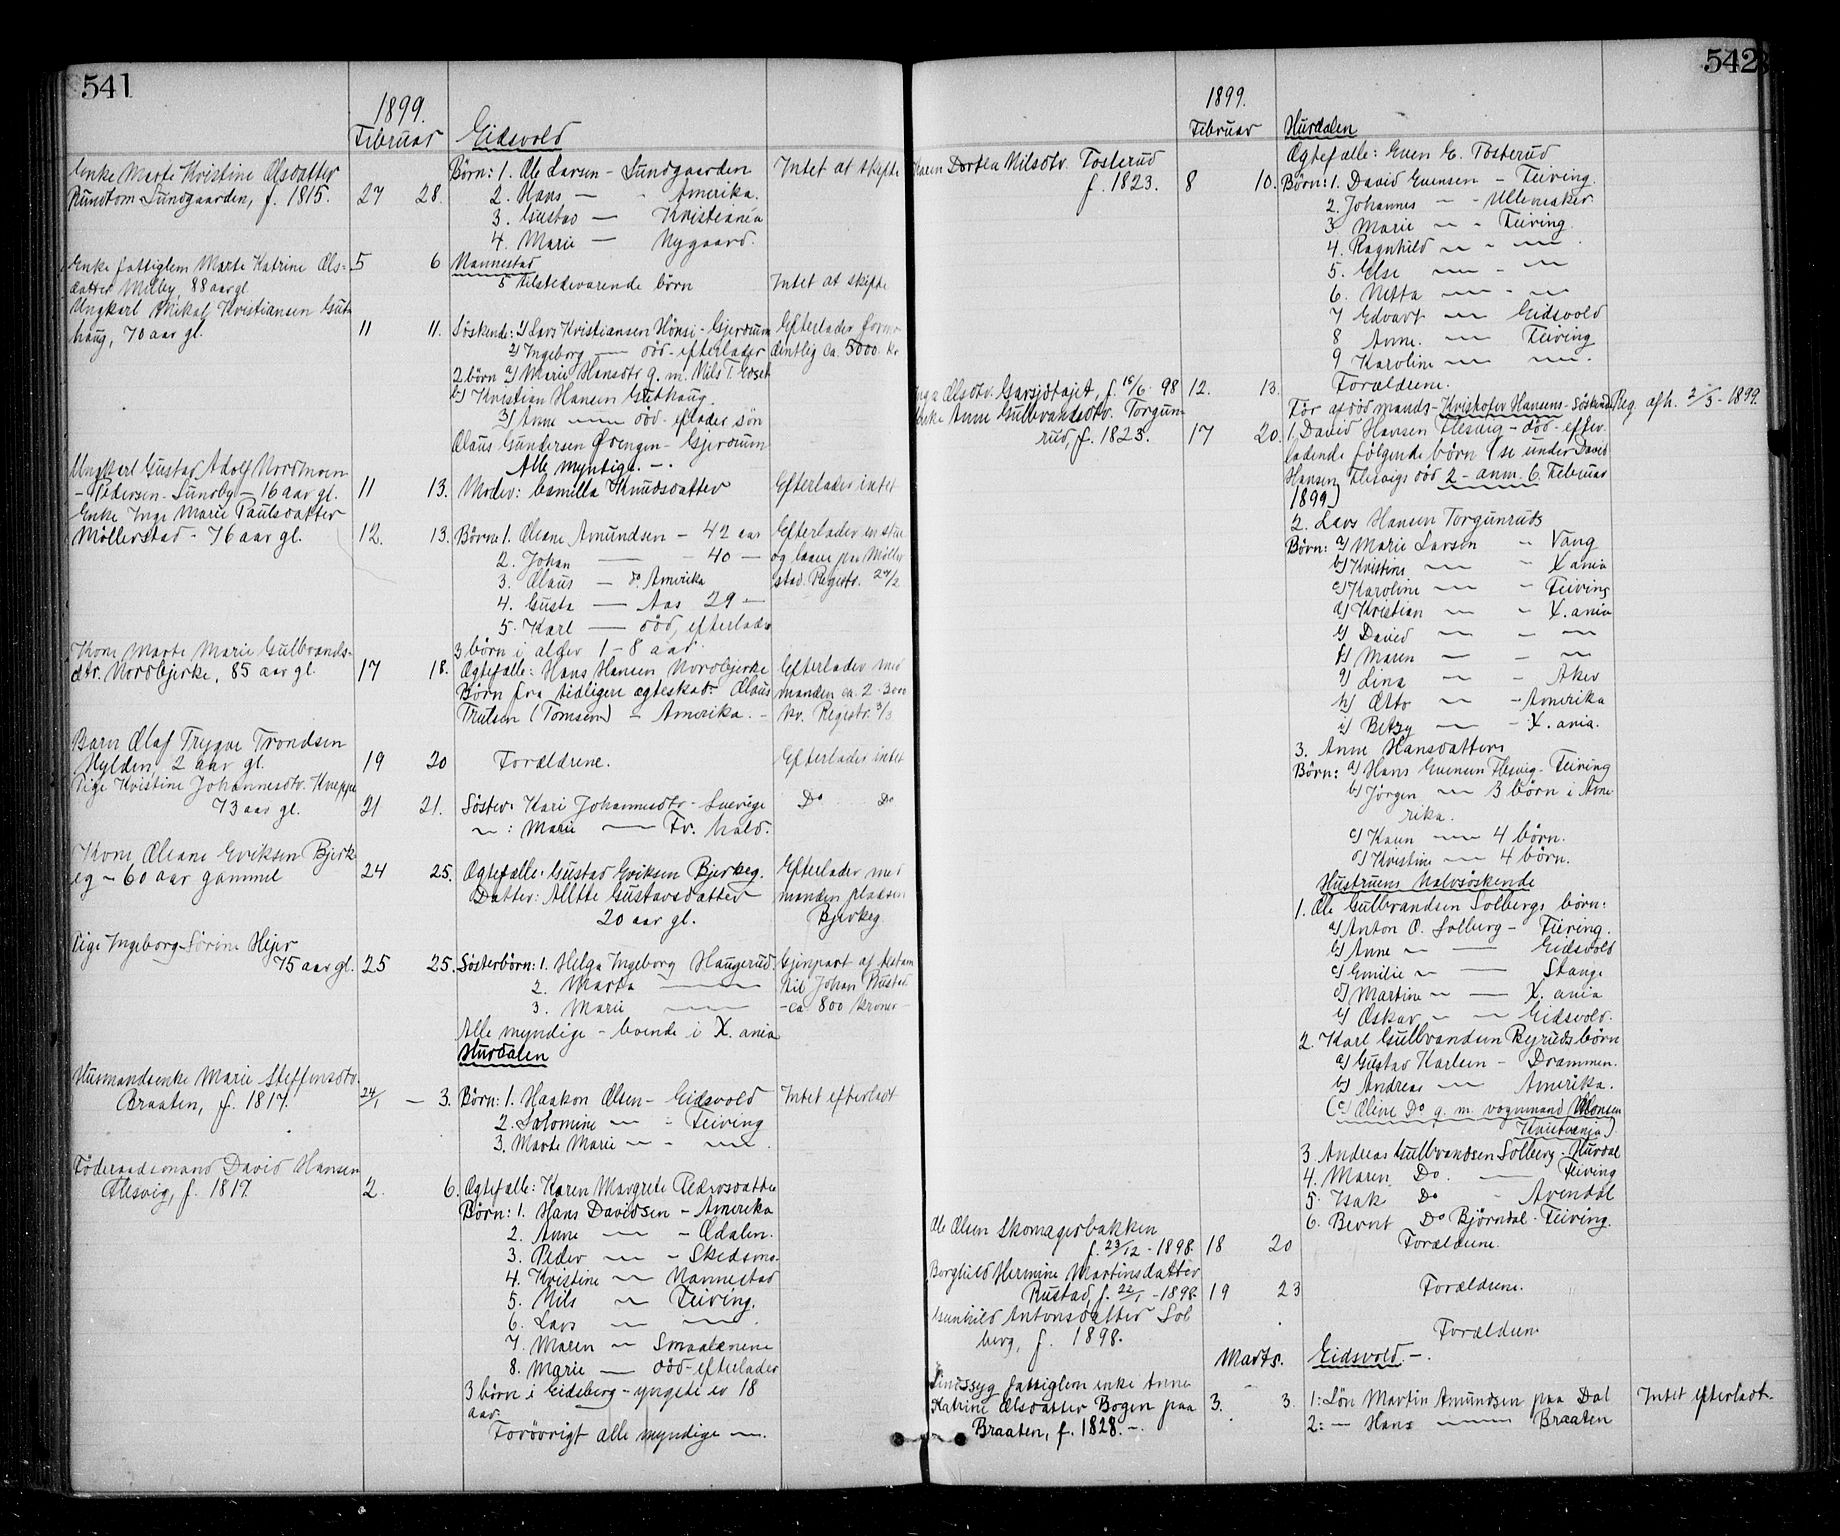 541
1899.
Februar
Eidsvold
Enke Marte Kristine Olsdatter
Rundtom Sundgaarden, f. 1815. 27 28.
Börn: 1. Ole Larsen - Sundgaarden
2. Hans — - Amerika.
3. Gustav — Kristiania
4. Marie — Nygaard.
Intet at skifte
Enke fattiglem Marte Katrine Ols-
datter Melby, 88 aar gl 5 6
Nannestad
5 tilstedeværende börn
Intet at skifte
Ungkarl Mikal Kristiansen Gut-
haug, 70 aar gl. 11 11.
Söskende: 1) Lars Kristiansen Hönsi - Gjerdrum
2) Ingeborg — död - efterlader
2 börn a) Marie Hansdtr g. m. Nils T.
b) Kristian Hansen Guthaug.
3) Anne — död - eflader sön
Olaus Gundersen Grengen - Gjerdrum
Alle myntige. -.
Efterlader formo-
dentlig ca. 5000 kr
Ungkarl Gustav Adolf Nordmoen
- Pedersen - Sundby - 16 aar gl. 11 13.
Moder: Camilla Knudsdatter
Efterlader intet
Enke Inge Marie Paulsdatter
Möllerstad - 76 aar gl. 12. 13.
Börn: 1. Oliane Amundsen - 42 aar
2. Johan — - 40 —
3. Olaus — do. Amerika
4. Gusta — Aas 29 —
5. Karl — död, efterlader
3 börn i alder 1 - 8 aar.
Efterlader en stue
og laane paa Möller
stad. Registr. 24/2
Kone Marte Marie Gulbrands-
dtr. Nordbjerke, 85 aar gl. 17 18.
Ægtefælle: Hans Hansen Nordbjerke
Börn fra tidligere ægteskab: Olaus
Trulsen (Tomsen) - Amerika. -
Efterlader med
manden ca. 2 - 3000
kr. Registr. 3/3
Barn Olaf Trygve Trondsen
Hylden, 2 aar gl. 19 20
Forældrene.
Efterlader intet
Pige Kristine Johannesdtr. Kneppe
73 aar gl. 21 21.
Söster: Kari Johannesdtr - Sverige
— : Marie — Fr. hald.
Do Do
Kone Oliane Eriksen Bjerk
eg - 60 aar gammel 24 25.
Ægtefælle: Gustav Eriksen Bjerkeg.
Datter: Gustavsdatter
20 aar gl.
Efterlader med
manden pladsen
Bjerkeg.
Pige Ingeborg Sörine Hejer
75 aar gl. 25 25.
Sösterbörn: 1. Helga Ingeborg Haugerud.
2. Marta — —
3. Marie —
Alle myndige - boende i X. ania
Gjenpart af testam
til Johan Rustad
- ca 800 kroner -
Hurdalen
Husmandsenke Marie Steffensdtr.
Braaten, f. 1817. 24/1 — 3.
Börn: 1. Haakon Olsen - Eidsvold
2. Salomine — - Feiring
3. Marte Marie — - —.
Intet efterladt
Föderaadsmand David Hansen
Flesvig, f. 1817. 2. 6.
Ægtefælle: Karen Margrete Pedersdatter
Börn: 1. Hans Davidsen - Amerika
2. Anne — - Odalen.
3. Peder — - Skedsmo.
4. Kristine — Nannestad
5. Nils — Feiring.
6. Lars — —.
7. Maren — Smaalenene
8. Marie — död - efterlader
3 börn i Eidsberg - yngste er 18
aar.
Forövrigt alle myndige —.
542
1899.
Februar
Hurdalen
Karen Dortea Nilsdtr. Tosterud
f. 1823. 8 10.
Ægtefælle: Even E. Tosterud
Börn: 1. David Evensen - Feiring.
2. Johannes — - Ullensaker
3 Marie — - Feiring.
4. Ragnhild — - —.
5. Else — - —
6. Netta — - —
7 Edvart — Eidsvold
8 Anne. — Feiring
9 Karoline — —.
Olsdtr. Garsjötajet, f. 15/6 98 12. 13.
Forældrene.
Enke Anne Gulbrandsdtr. Torgun-
rud, f. 1823. 17 20.
För afdöd mands - Kristofer Hansens - söskende
Reg. afh. 2/3 - 1899.
1. David Hansen Flesvig - död - efter-
ladende følgende börn (se under David
Hansen Flesvigs död 2 - anm. 6 Februar
1899)
2. Lars Hansen Torgunruds
Börn: a) Marie Larsen - Vang
b) Kristine — - X ania
c) Karoline — - Feiring
d) Kristian — - X. ania
e) David — - —
f) Maren — - —
g) Lina — - Aker
h) Otto — - Amerika
i) Betzy — - X. ania.
3. Anne Hansdatters
Börn: a) Hans Evensen Flesvig - Feiring
b) Jörgen — 3 börn i Ame-
rika.
c) Karen — 4 börn.
d) Kristine — 4 börn.
Hustruens Halvsöskende
1. Ole Gulbrandsen Solbergs börn:
a) Anton O. Solberg - Feiring.
b) Anne — — Eidsvold
c) Emilie — — Stange
d) Martine — — X. ania
e) Oskar — — Eidsvold.
2. Karl Gulbrandsen Bjeruds börn
a) Gustav Karlsen - Drammen.
b) Andreas — Amerika.
(c) Oline Do g. m. vognmand Monsen
Kristiania)
3 Andreas Gulbrandsen Solberg - Hurdal
4. Maren Do. — Feiring
5. Isak Do - Arendal
6. Bernt Do Björndal - Feiring.
Ole Olsen Skomagerbakken
f. 23/12 - 1898. 18 20
Forældrene.
Borghild Hermine Martinsdatter
Rustad, f. 22/1 - 1898. 19 23
Forældrene.
Gunhild Antonsdatter Sol
berg, f. 1898.
Forældrene
Marts.
Eidsvold. -.
Sindssyg fattiglem enke Anne
Katrine Olsdatter Bogen paa
Braaten, f. 1828. -. 3. 3.
1: Sön Martin Amundsen paa Dal
2: — Hans — Braaten
Intet efterladt.